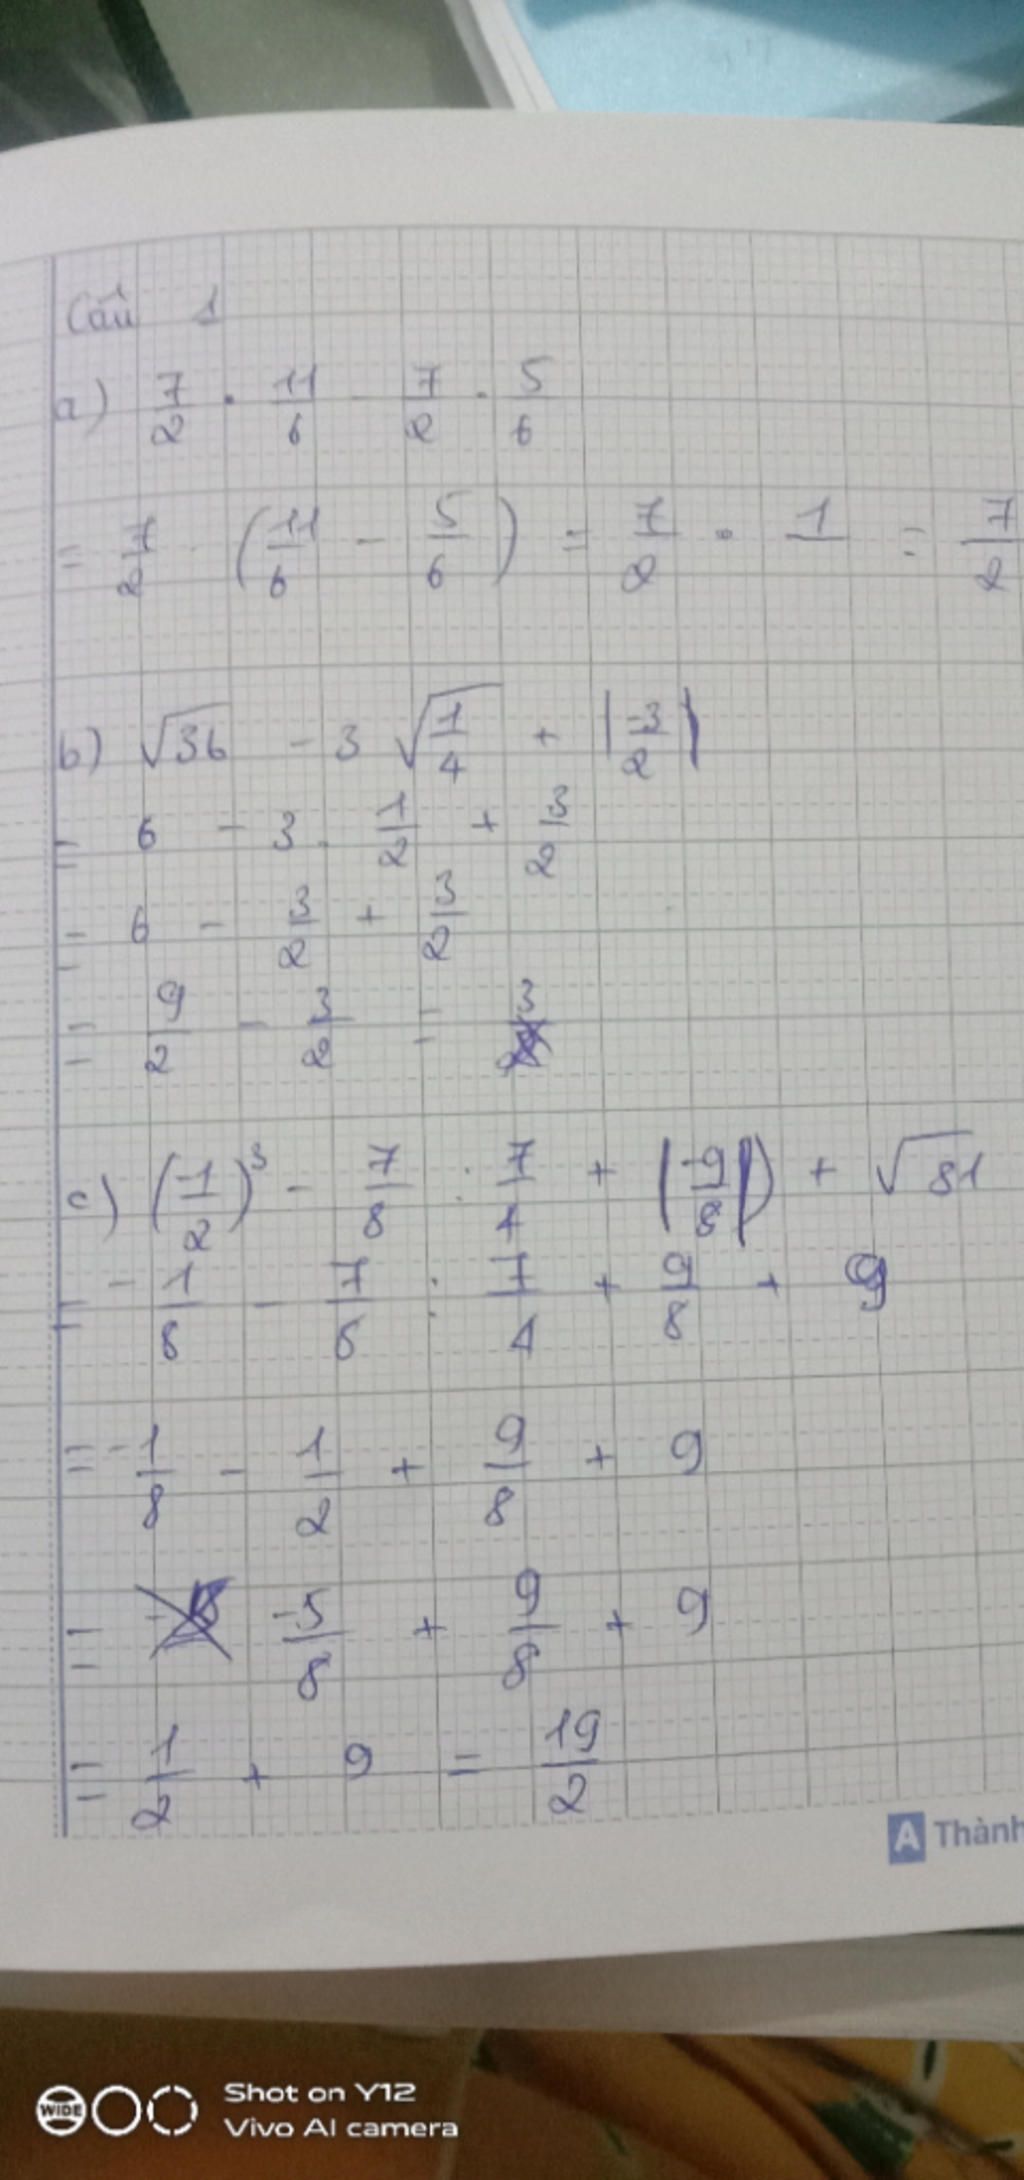 Câu 1
a) 7/2 . 11/6 - 7/2 . 5/6
= 7/2 . (11/6 - 5/6) = 7/2 . 1 = 7/2
b) √36 - 3 √(1/4) + |-3/2|
= 6 - 3 . 1/2 + 3/2
= 6 - 3/2 + 3/2
= 9/2 - 3/2 = 3
c) (-1/2)³ - 7/8 : 7/4 + |-9/8| + √81
= -1/8 - 7/8 : 7/4 + 9/8 + 9
= -1/8 - 1/2 + 9/8 + 9
= -5/8 + 9/8 + 9
= 1/2 + 9 = 19/2
A Thành
WIDE
Shot on Y12
Vivo AI camera